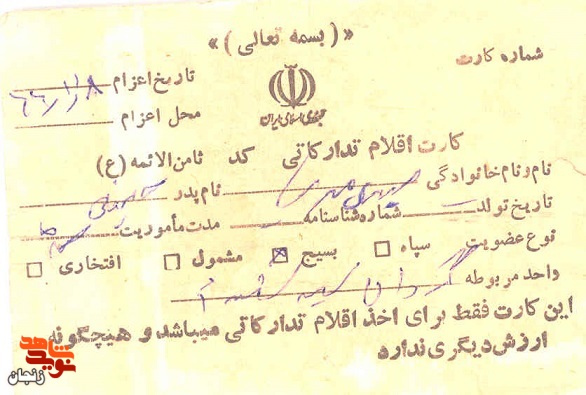 « ( بسمه تعالی ) »
شماره کارت
تاریخ اعزام ۶۶/۱/۸
محل اعزام
جمهوری اسلامی ایران
کارت اقلام تدارکاتی کد ثامن الائمه (ع)
نام و نام خانوادگی نام پدر
تاریخ تولد شماره شناسنامه مدت مأموریت
نوع عضویت سپاه □ بسیج ☒ مشمول □ افتخاری □
واحد مربوطه گردان
این کارت فقط برای اخذ اقلام تدارکاتی میباشد و هیچگونه
ارزش دیگری ندارد
نوید شاهد
زنجان